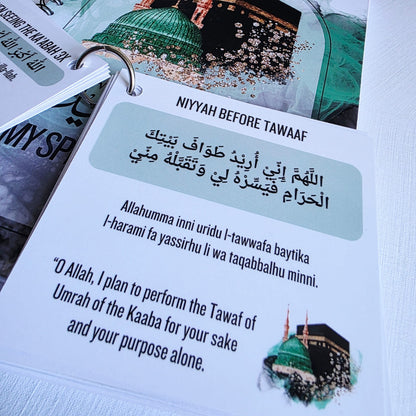 SEEING THE KAABAH 3X
MY SP
NIYYAH BEFORE TAWAAF
اللَّهُمَّ إِنِّي أُرِيْدُ طَوَافَ بَيْتِكَ
الْحَرَامِ فَيَسِّرْهُ لِيْ وَتَقَبَّلْهُ مِنِّيْ
Allahumma inni uridu l-tawwafa baytika
l-harami fa yassirhu li wa taqabbalhu minni.
"O Allah, I plan to perform the Tawaf of
Umrah of the Kaaba for your sake
and your purpose alone.